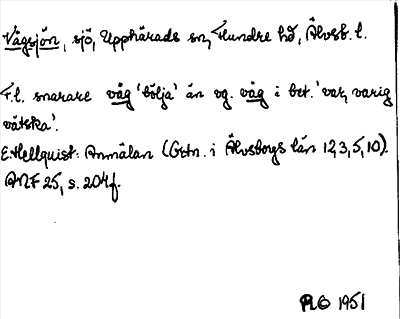 Vågsjön, sjö, Upphärads sn, Flundre hd, Älvsb. l.
F.l. snarare våg 'bölja' än vg. våg i bet. 'var, varig
vätska'.
E. Hellquist: Anmälan (Ortn. i Älvsborgs län 12, 3, 5, 10).
ANF 25, s. 204f.
1951